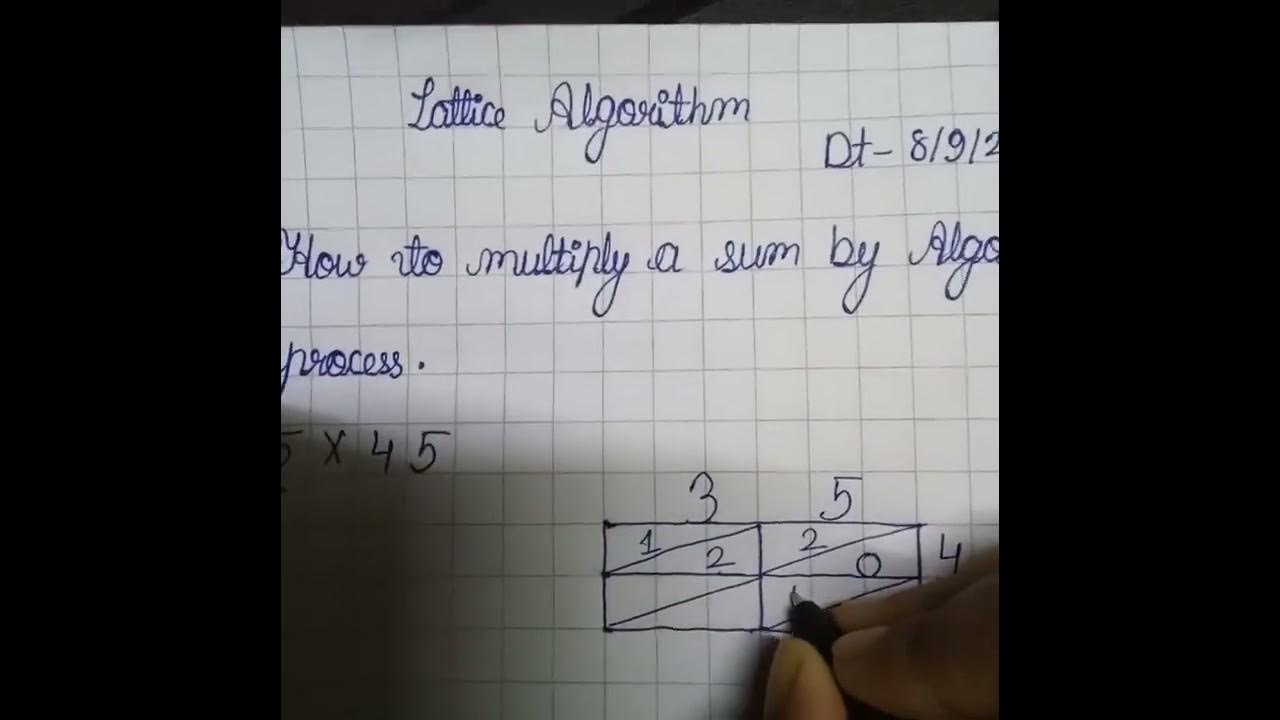 Lattice Algorithm
Dt- 8/9/2
How to multiply a sum by Algo
process.
5 X 45
3 5
1 2 2 0 4